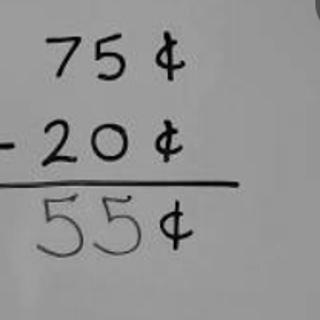 75 ¢
- 20 ¢
55 ¢